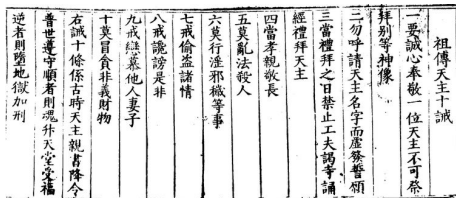 祖傳天主十誡
一要誠心奉敬一位天主不可祭
拜別等神像
二勿呼請天主名字而虛發誓願
三當禮拜之日禁止工夫謁寺誦
經禮拜天主
四當孝親敬長
五莫亂法殺人
六莫行淫邪穢等事
七戒偷盜諸情
八戒讒謗是非
九戒戀慕他人妻子
十莫冒貪非義財物
右誡十條係古時天主親書降令
普世遵守順者則魂升天堂受福
逆者則墮地獄加刑